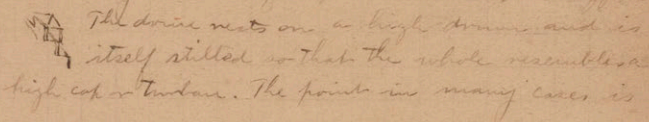 The dome rests on a high drum and is
itself stilted so that the whole resembles a
high cap or turban. The point in many cases is